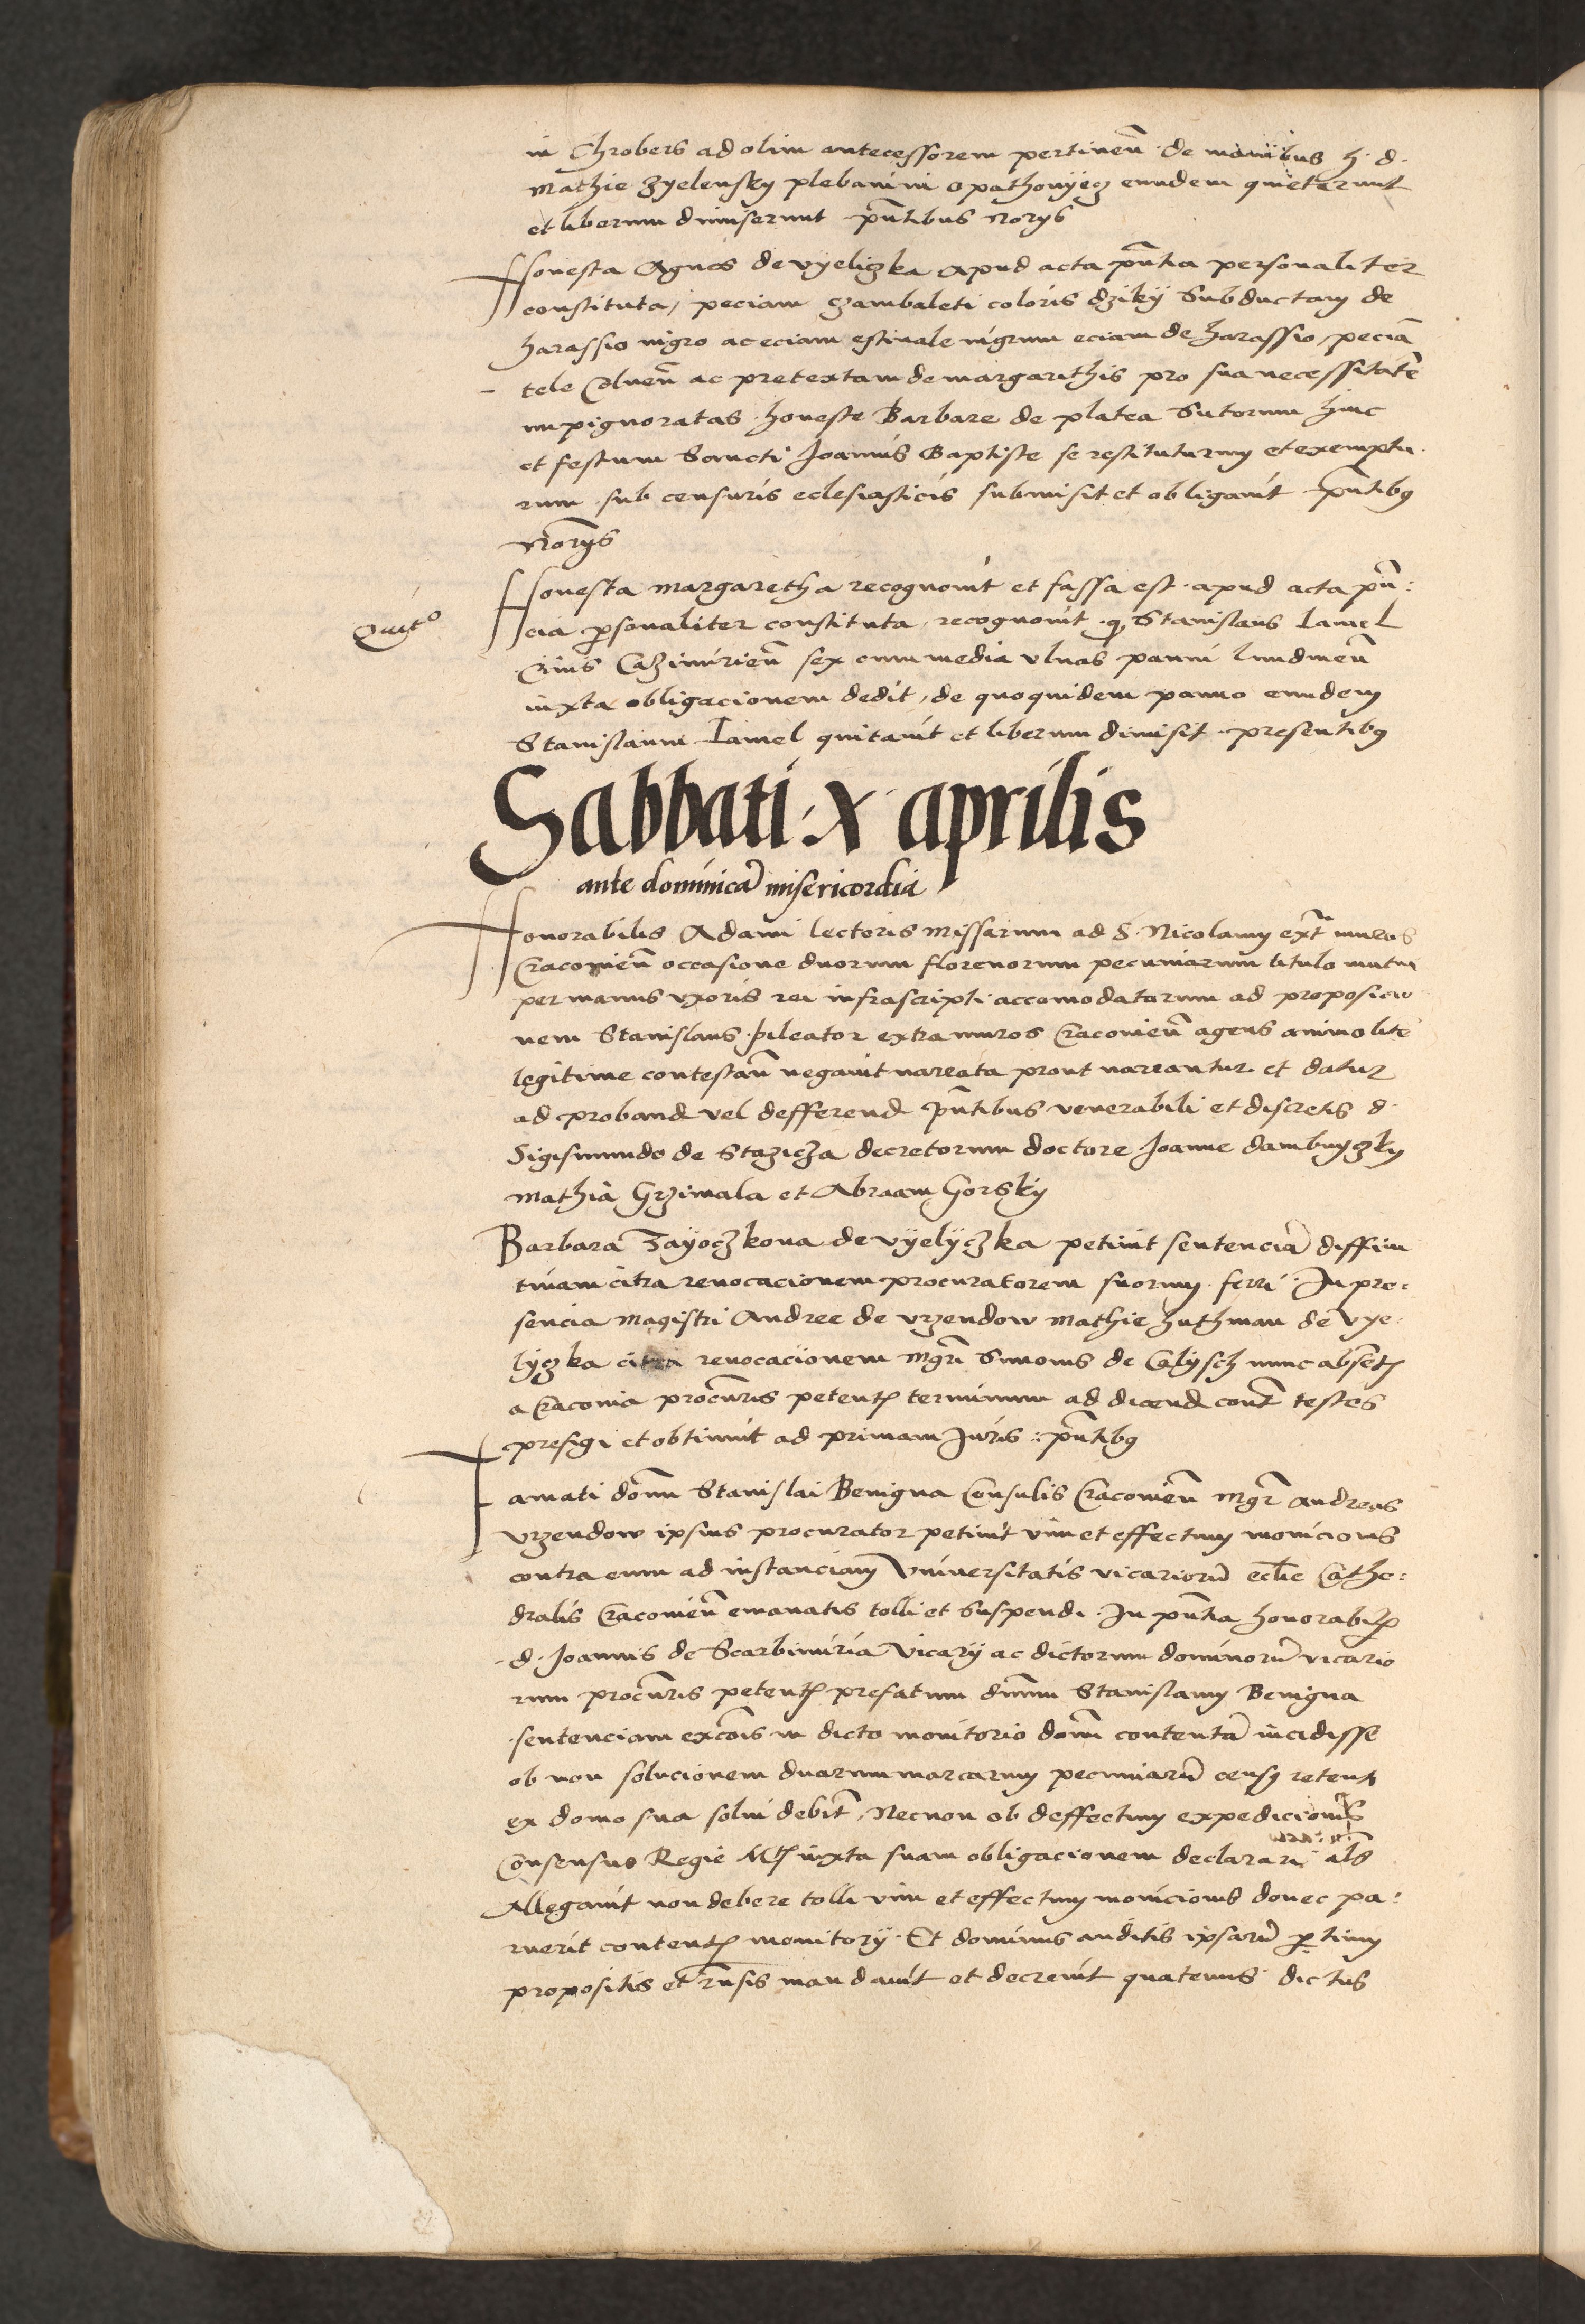 in Chrobers ad olim antecessorem pertineñ de manibus h. d.
Mathie Zyelensky plebani in Opathovyecz eundem quietarunt
et liberum dimiserunt pñtibus Norys
Honesta Agnes de Vyeliczka apud acta pñtia personaliter
constituta, peciam czambaleti coloris dziky subductam de
harassio nigro ac eciam estivale nigrum eciam de harassio, peciã
tele Colneñ ac pretextam de margarithis pro sua necessitate
impignoratas honeste Barbare de platea Sutorum hinc
et festum Sancti Joannis Baptiste se restituturum et exemptu
rum sub censuris eclesiasticis submisit et obligavit pñtibus
Norys
Quito
Honesta Margaretha recognovit et fassa est apud acta pñ:
cia personaliter constituta, recognovit q Stanislaus Iamel
Civis Cazimirieñ sex cum media ulnas panni lundineñ
iuxta obligacionem dedit, de quo quidem panno eundem
Stanislaum Iamel quitavit et liberum dimisit presentibus
Sabbati x aprilis
ante dominicã misericordia
Honorabilis Adami lectoris missarum ad S. Nicolaum extra muros
Cracovieñ occasione duorum florenorum pecuniarum titulo mutui
per manus uxoris rei infrascripti accomodatorum ad proposicio
nem Stanislaus pileator extra muros Cracovieñ agens animo lite
legitime contestañ negavit narrata prout narrantur et datur
ad proband vel defferend pñtibus venerabili et discretis d.
Sigismundo de Stazicza decretorum doctore Joanne dambnyczky
Mathia Grzimala et Abraam Gorsky
Barbara Zayoczkova de Vyelyczka petivit sentenciã diffini
tivam citra revocacionem procuratorem suorum ferri. In pre:
sencia Magistri Andree de Vrzendow Mathie huthman de Vye:
lyczka citra revocacionem Mgri Simonis de Calysch nunc absent
a Cracovia procuris petent terminum ad dicend cont testes
prefigi et obtinuit ad primam Juris: pñtibus
Famati domñ Stanislai Benigna Consulis Cracovieñ Mgr Andreas
Vrzendow ipsius procurator petivit vim et effectum monicionis
contra eum ad instanciam Universitatis vicariorũ eccle Cathe:
dralis Cracovieñ emanatis tolli et suspendi. In pñtia honorabil
d. Joannis de Scarbimiria Vicary ac dictorum dominorũ vicario
rum procuris petent prefatum dñum Stanislaum Benigna
sentenciam excois in dicto monitorio domi contentã incidisse
ob non solucionem duarum marcarum pecuniarũ census retent
ex domo sua solvi debit, Necnon ob deffectum expedicionis
Consensus Regie Mt iuxta suam obligacionem declarari als
Allegavit non debere tolli vim et effectum monicionis donec pa:
ruerit content monitory. Et dominus auditis ipsarũ partium
propositis et rñsis mandavit et decrevit quatenus dictus